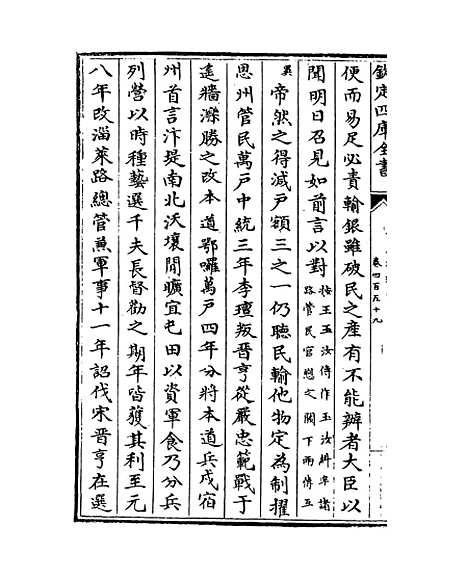 欽定四庫全書
卷四百五十九
便而易足必責輸銀雖破民之產有不能辦者大臣以
聞明日召見如前言以對按王玉汝傳作玉汝糾率諸路管民官愬之闕下兩傳互
異帝然之得減戶額三之一仍聽民輸他物定為制擢
恩州管民萬戶中統三年李璮叛晉亨從嚴忠範戰于
遙牆濼勝之改本道鄂囉萬戶四年分將本道兵戍宿
州首言汴堤南北沃壤閒曠宜屯田以資軍食乃分兵
列營以時種藝選千夫長督勸之期年皆獲其利至元
八年改淄萊路總管兼軍事十一年詔伐宋晉亨在選